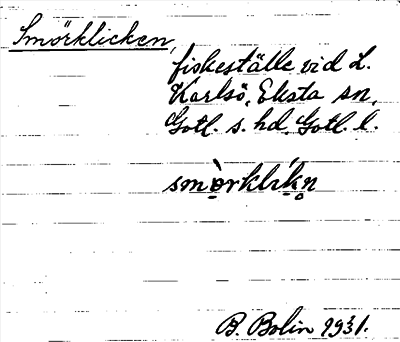 Smörklicken,
fiskeställe vid L.
Karlsö, Eksta sn,
Gotl. s. hd. Gotl. l.
B. Bolin 1931.